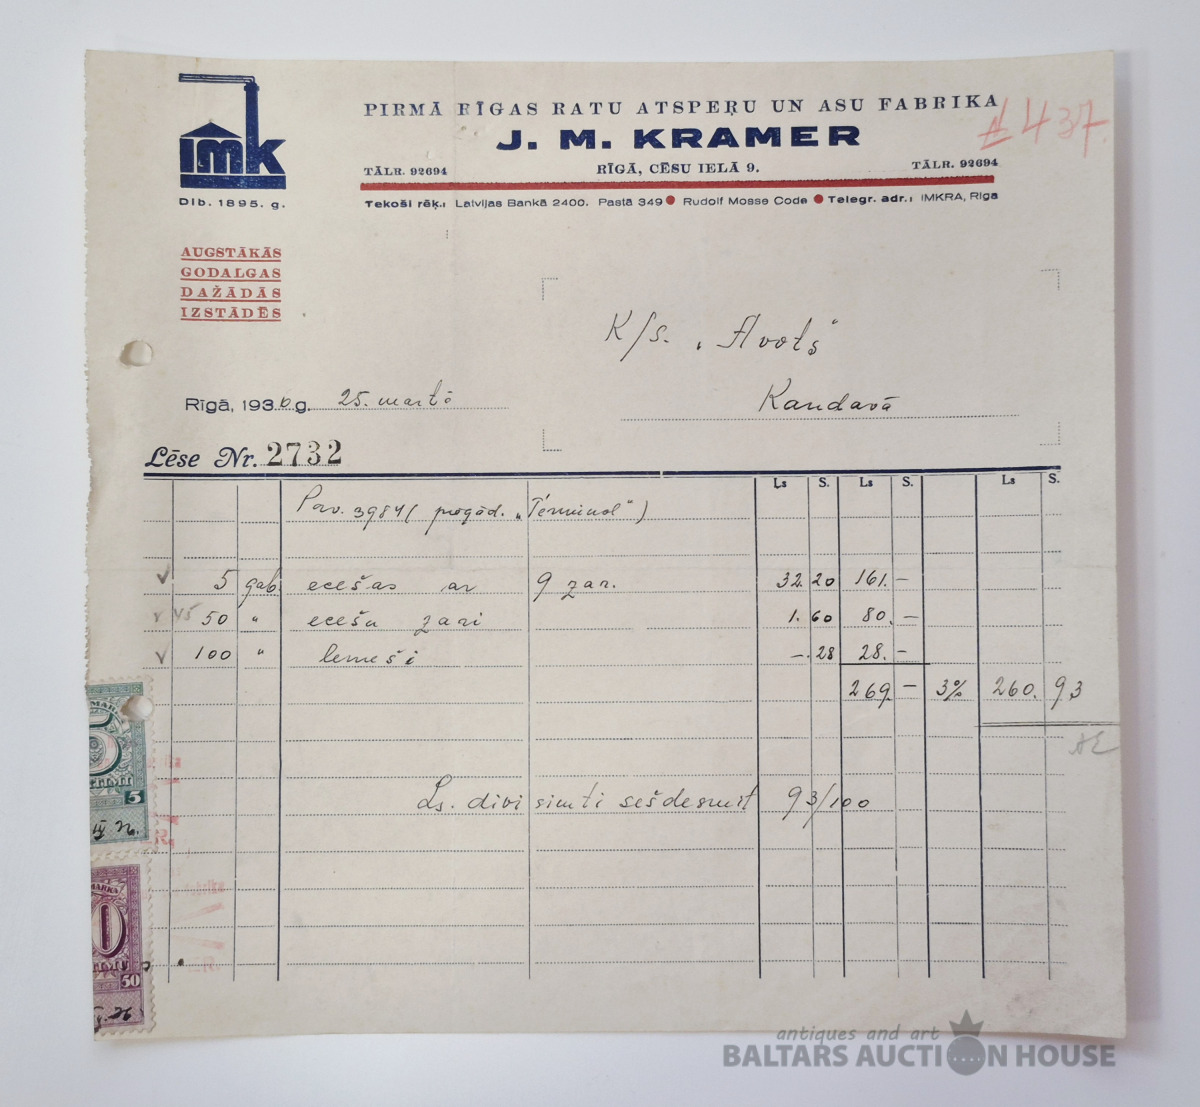 PIRMĀ RĪGAS RATU ATSPEŖU UN ASU FABRIKA
№ 437.
J. M. KRAMER
imk
TĀLR. 92694 RĪGĀ, CĒSU IELĀ 9. TĀLR. 92694
Dib. 1895. g.
Tekoši rēķ.: Latvijas Bankā 2400. Pastā 349 ● Rudolf Mosse Code ● Telegr. adr.: IMKRA, Rīga
AUGSTĀKĀS
GODALGAS
DAŽĀDĀS
IZSTĀDĒS
K/s. „Avots"
Rīgā, 1936 g. 25. martā
Kandavā
Lēse Nr. 2732
Ls S. Ls S. Ls S.
Pav. 3984 ( piegād. „Terminal" )
5 gab. ecēšas ar 9 zar. 32. 20 161. –
45 50 " ecēšu zari 1. 60 80. –
100 " lemeši –. 28 28. –
269 – 3% 260. 93
AE
Ls. divi simti sešdesmit 93/100
5
IV 36.
50
36
antiques and art
BALTARS AUCTION HOUSE